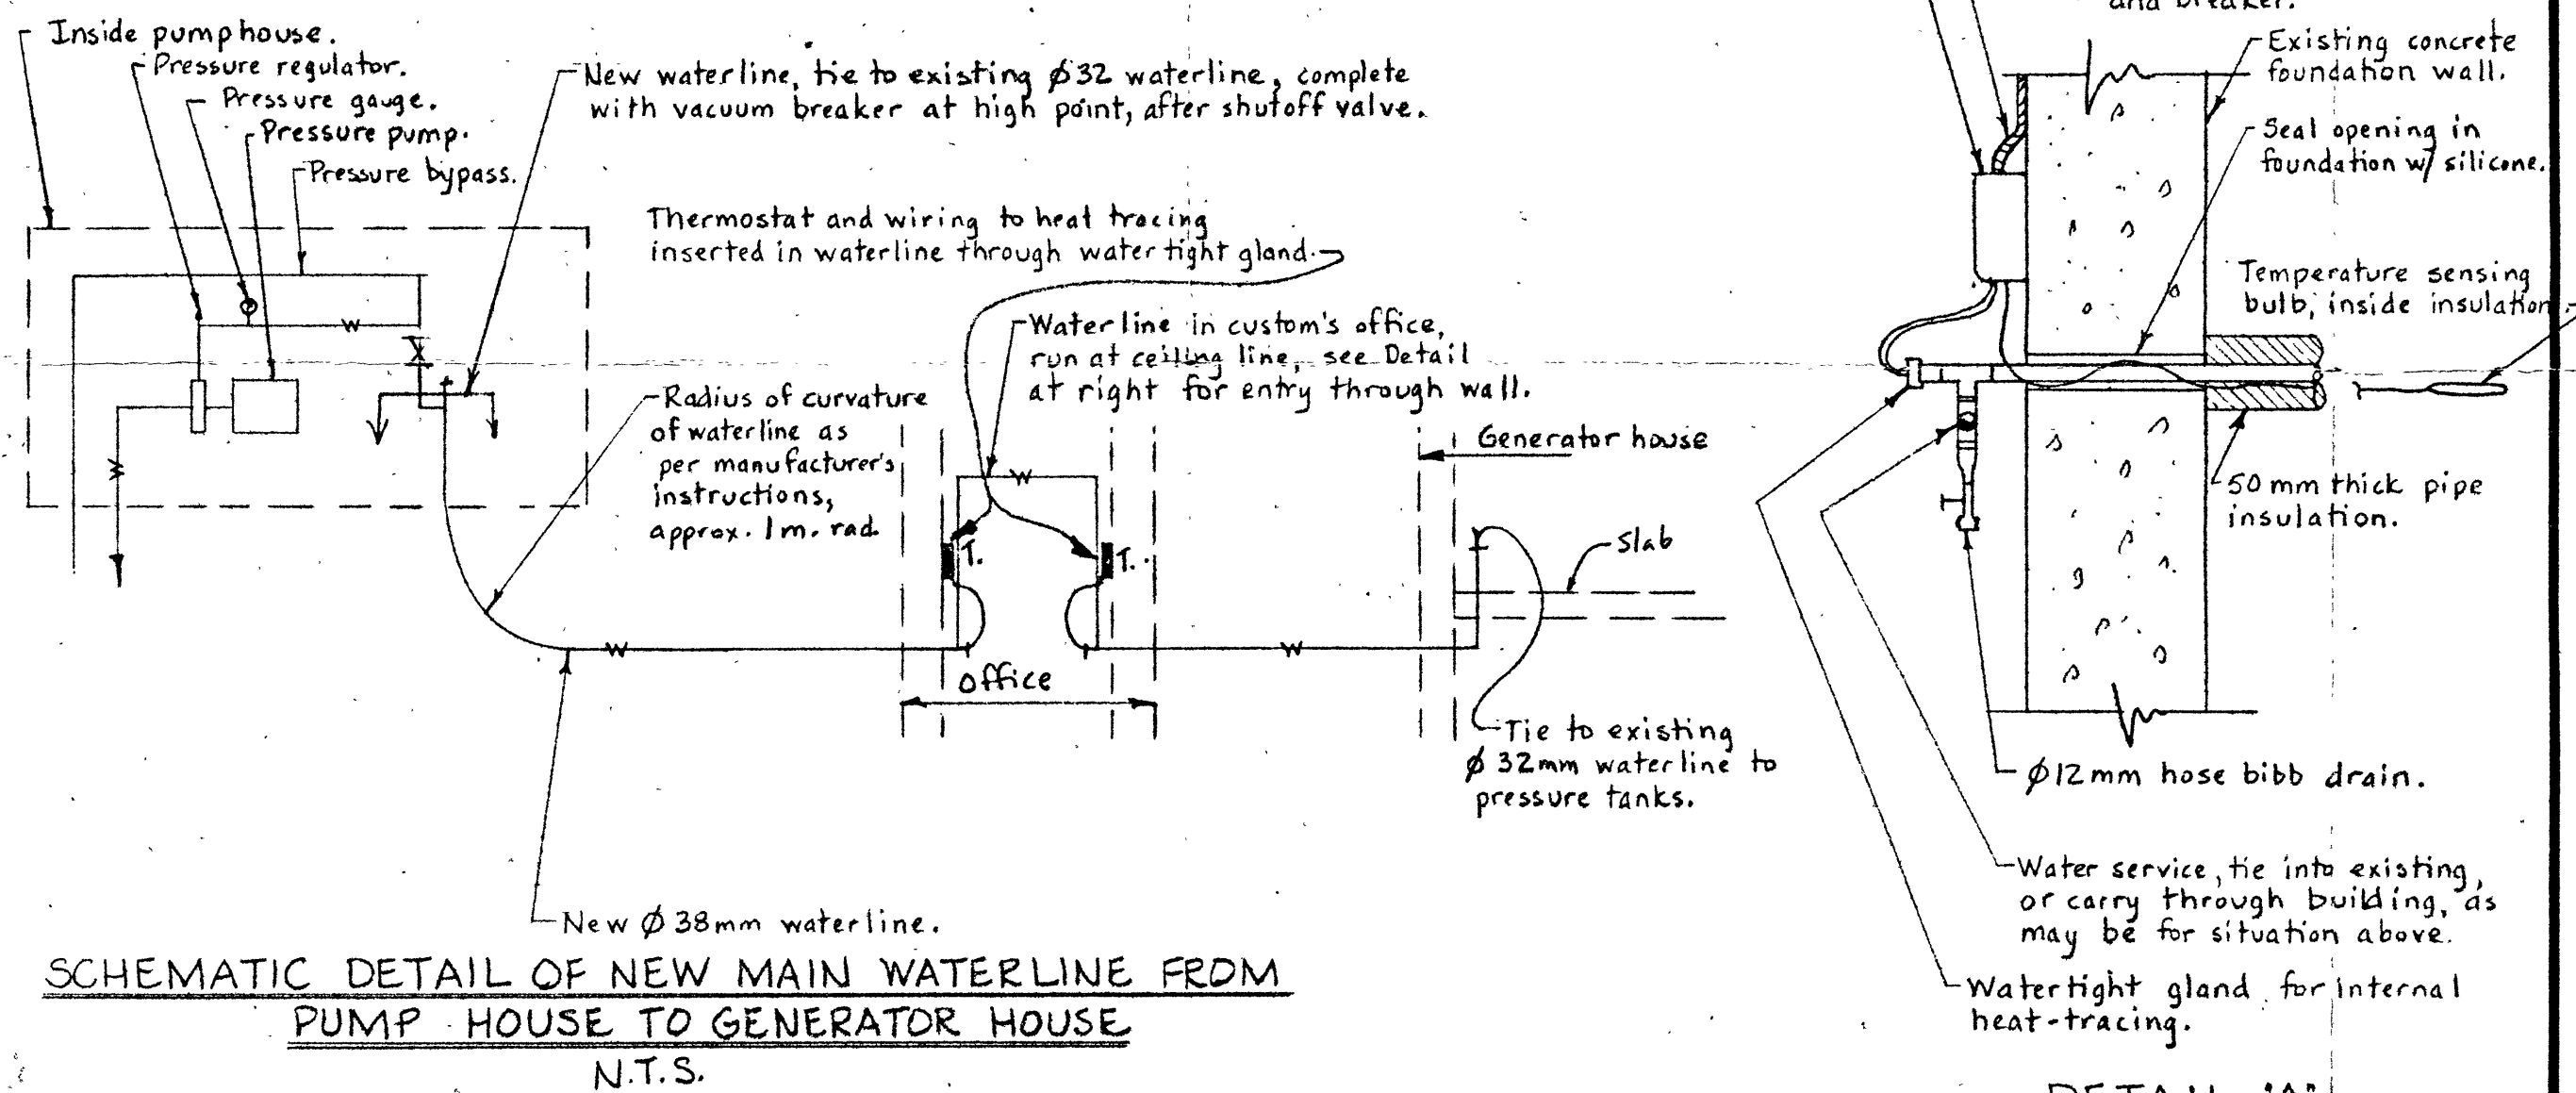 Inside pumphouse.
Pressure regulator.
Pressure gauge.
Pressure pump.
Pressure bypass.
New waterline, tie to existing Ø32 waterline, complete
with vacuum breaker at high point, after shutoff valve.
Thermostat and wiring to heat tracing
inserted in waterline through water tight gland.
Waterline in custom's office,
run at ceiling line, see Detail
at right for entry through wall.
Radius of curvature
of waterline as
per manufacturer's
instructions,
approx. 1m. rad.
T.
T.
office
Generator house
Slab
Tie to existing
Ø 32mm waterline to
pressure tanks.
New Ø 38mm waterline.
SCHEMATIC DETAIL OF NEW MAIN WATERLINE FROM
PUMP HOUSE TO GENERATOR HOUSE
N.T.S.
and breaker.
Existing concrete
foundation wall.
Seal opening in
foundation w/ silicone.
Temperature sensing
bulb, inside insulation.
50mm thick pipe
insulation.
Ø12mm hose bibb drain.
Water service, tie into existing,
or carry through building, as
may be for situation above.
Watertight gland for internal
heat-tracing.
DETAIL "A"